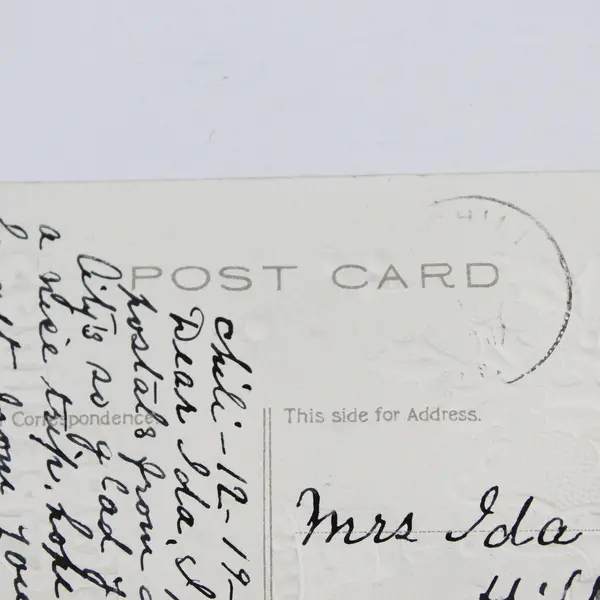 POST CARD
Correspondence
This side for Address.
Chili - 12 - 19 -
Dear Ida, I
postals from
City's so glad
a nice trip, hope
you
Mrs Ida